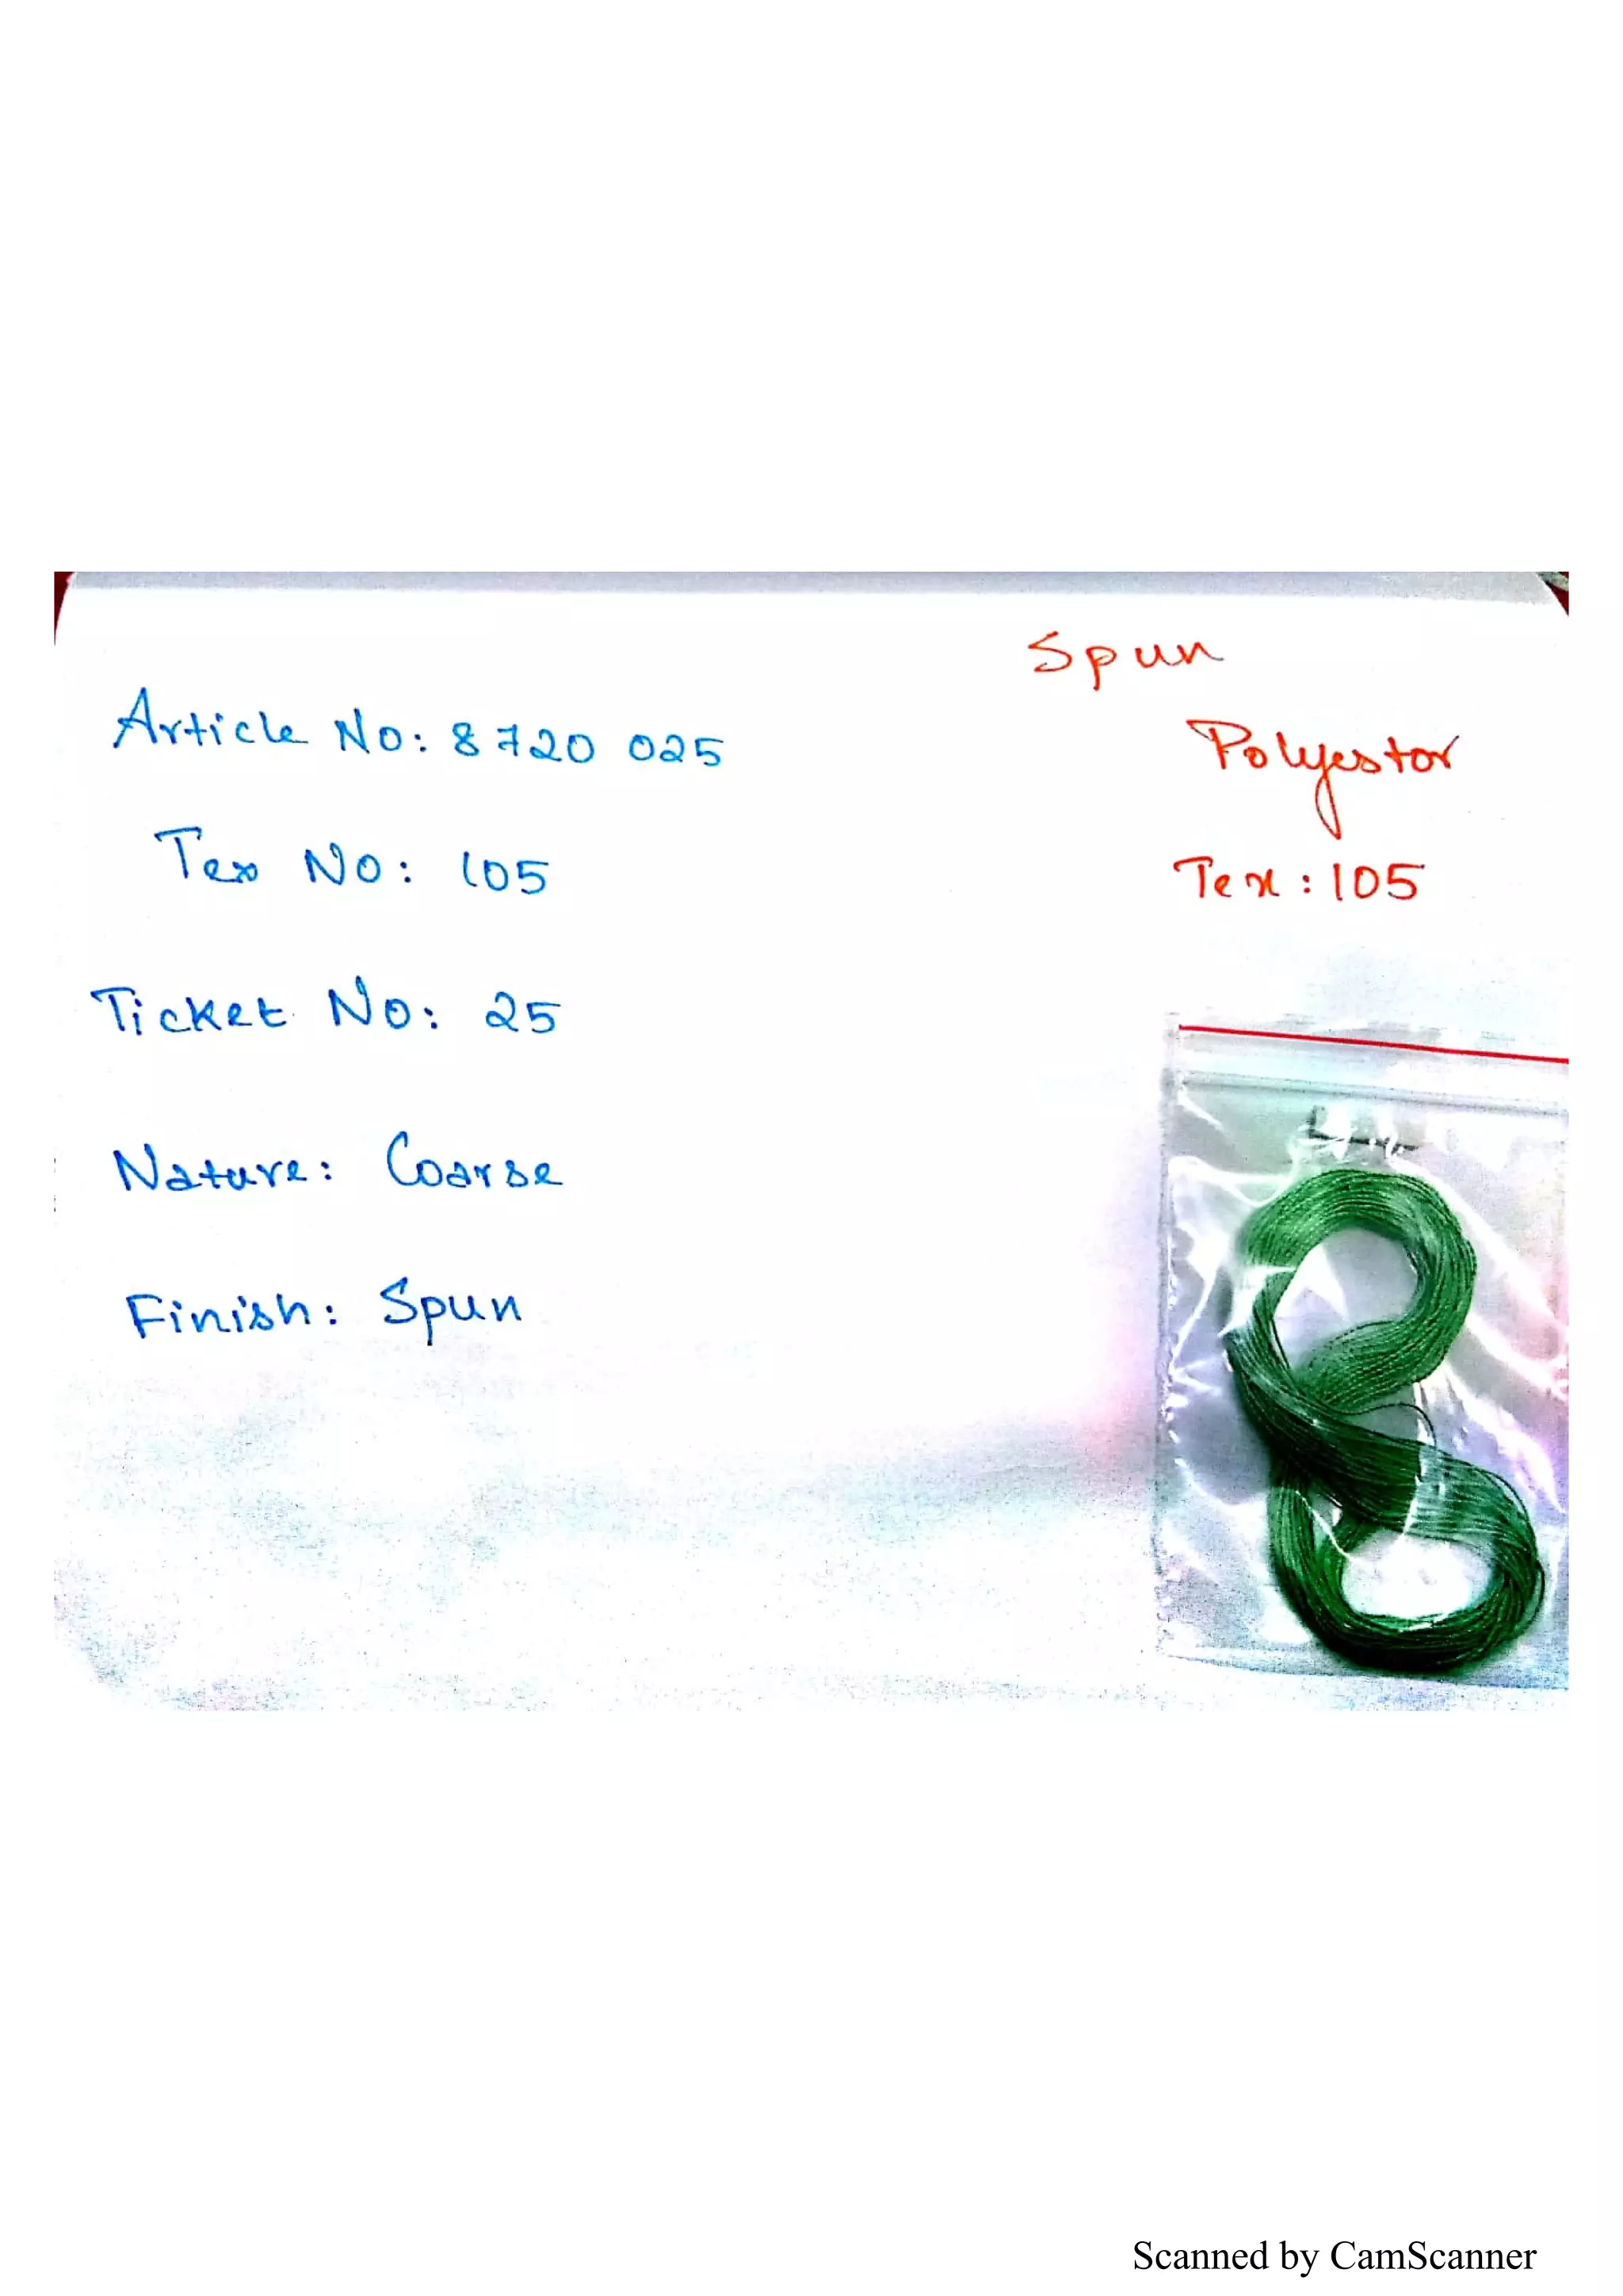 Spun
Article No: 8720 025
Polyestor
Tex No: 105
Tex : 105
Ticket No: 25
Nature: Coarse
Finish: Spun
Scanned by CamScanner